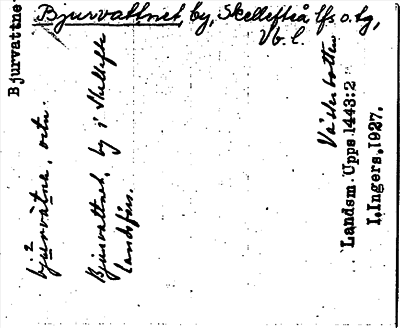 Bjurvattnet, by, Skellefteå lfs o. tg,
Vb. l.
Bjurvattne
bjurvàtnə, ortn.
Bjurvattnet, by i Skellefte
landsförs.
Västerbotten
Landsm. Upps. 1443:2
I. Ingers, 1927.